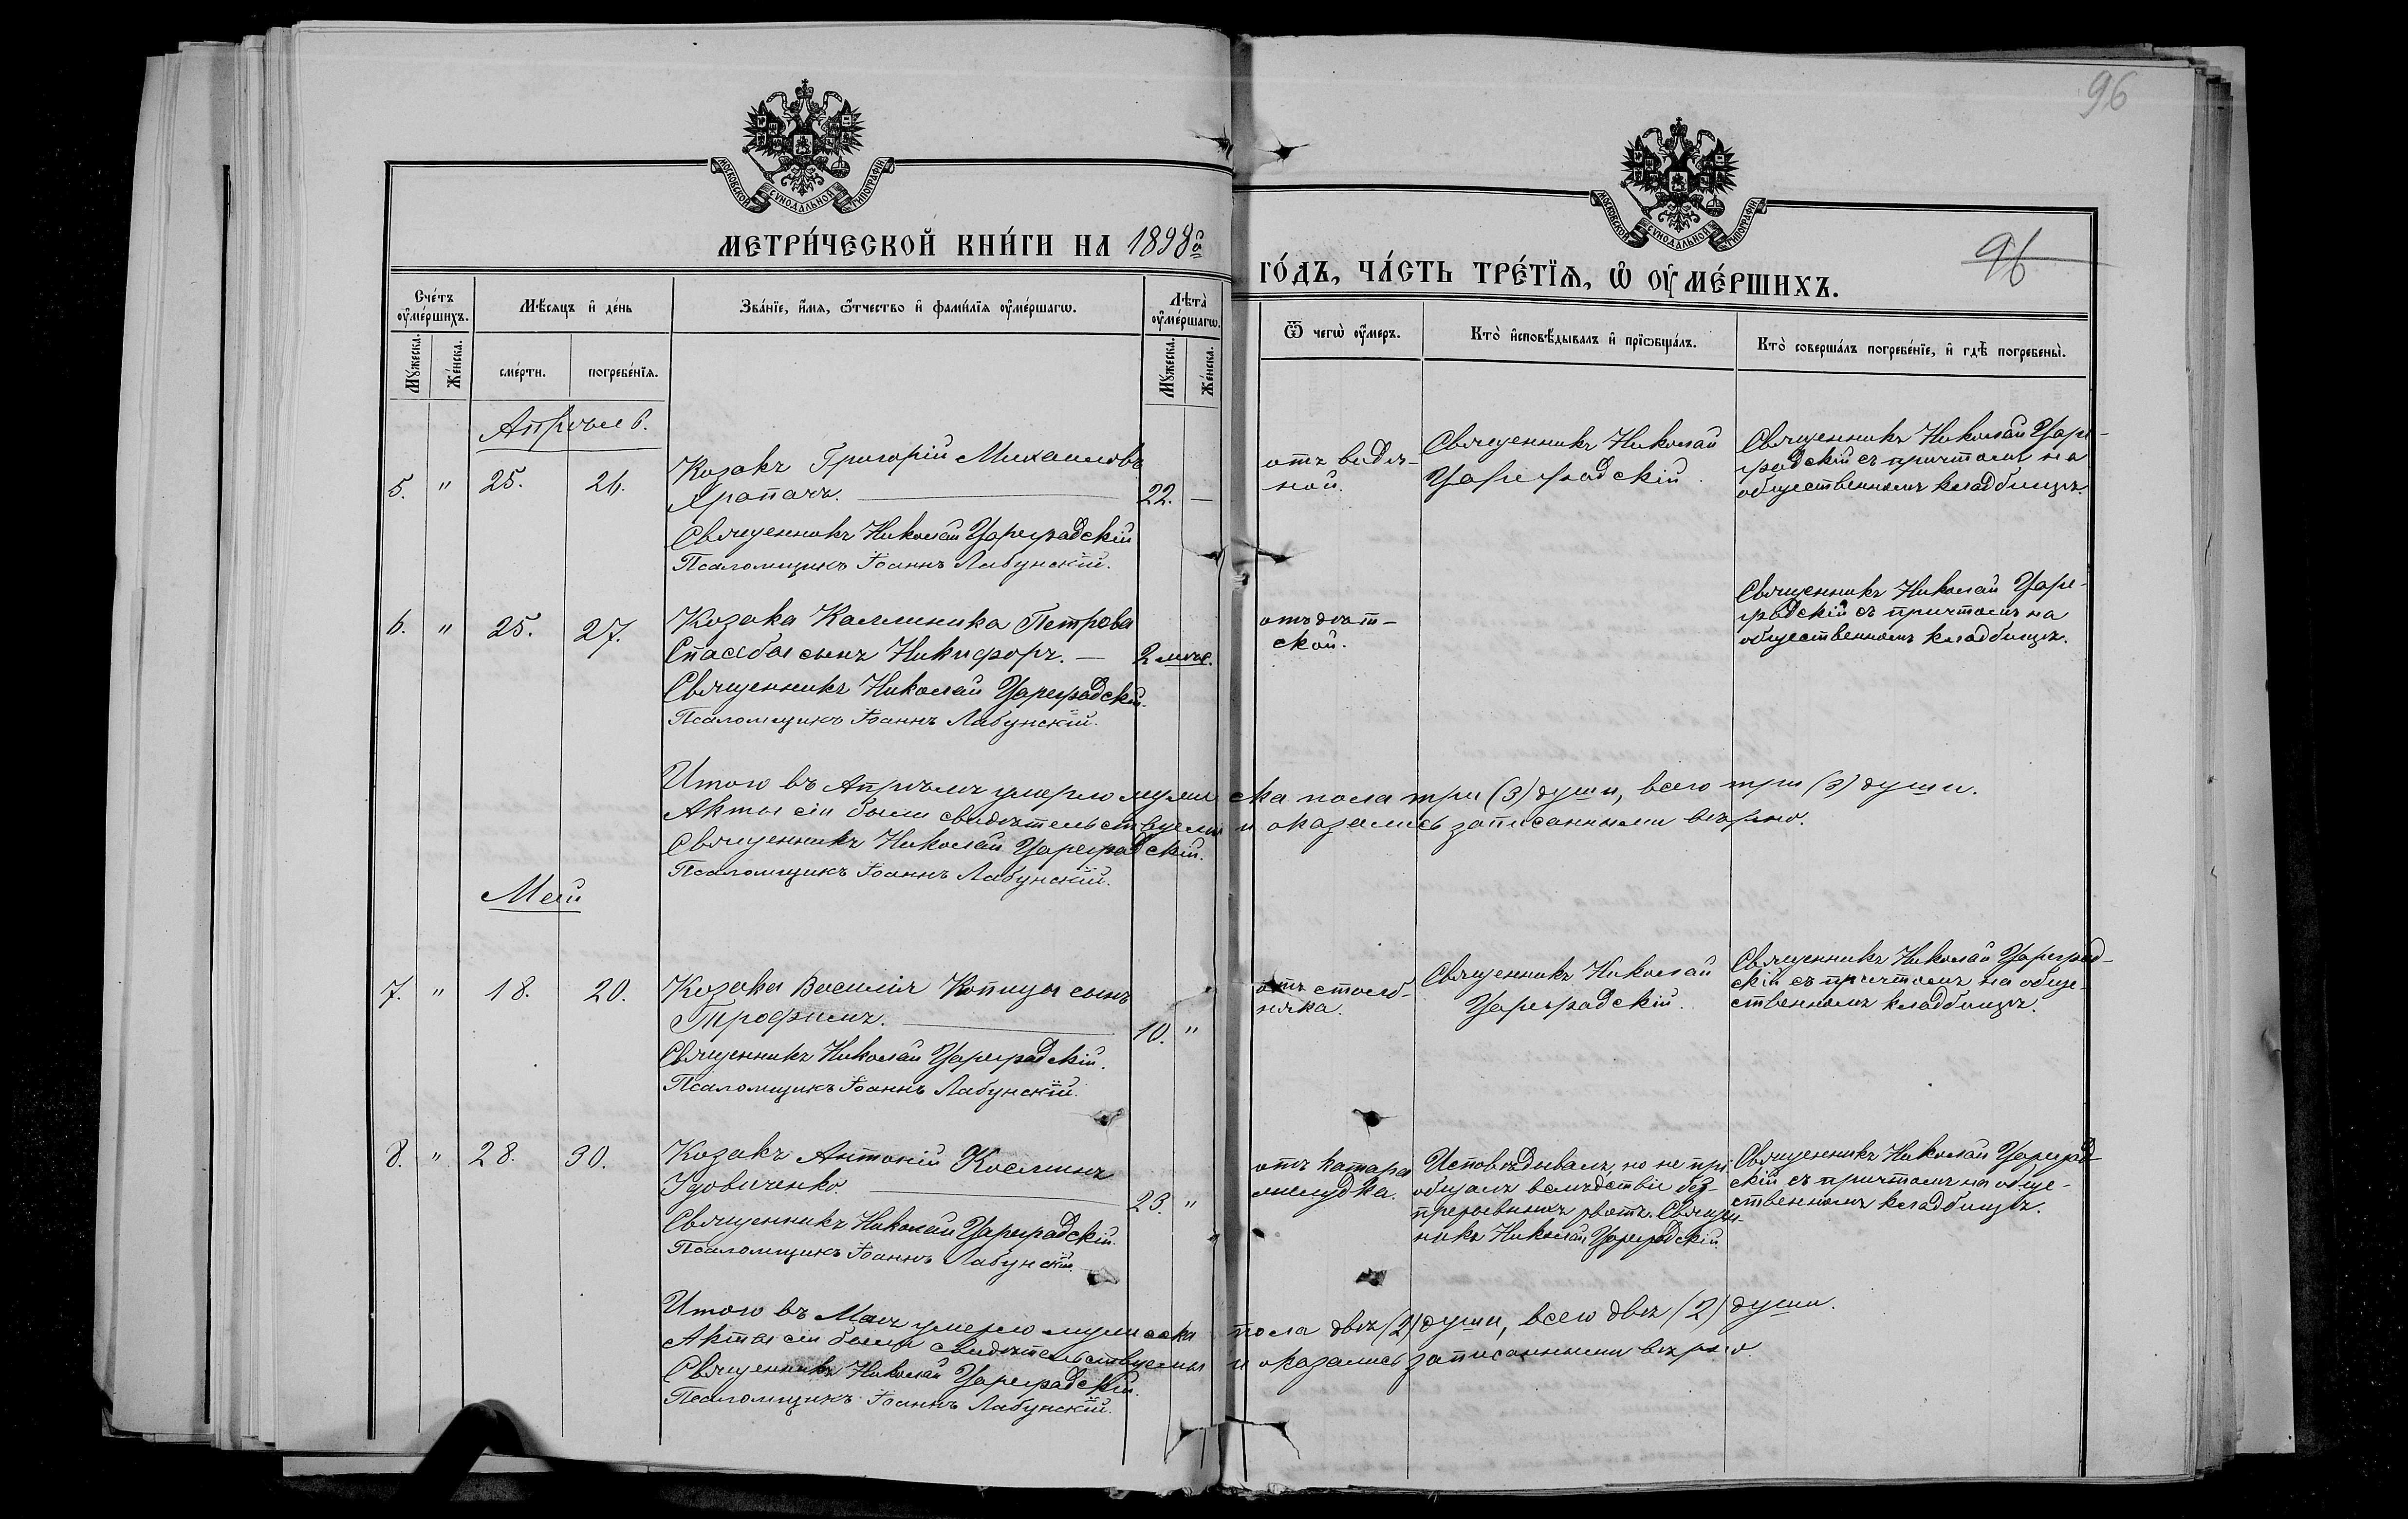 96
МОСКОВСКОЙ СѴНОДАЛЬНОЙ ТИПОГРАФІИ
МОСКОВСКОЙ СѴНОДАЛЬНОЙ ТИПОГРАФІИ
МЕТРИ́ЧЕСКОЙ КНИ́ГИ НА 1898й
ГО́ДЪ, ЧА́СТЬ ТРЕ́ТЇѦ, Ѽ ОУ҆МЕ́РШИХЪ.
96
Сче́тъ оу҆ме́ршихъ.
Мѣ́сяцъ и҆ де́нь
Зва́нїе, и҆́мѧ, ѻ҆́тчество и҆ фами́лїѧ оу҆ме́ршагѡ.
Лѣ́та оу҆ме́ршагѡ.
Ѿ чегѡ̀ оу҆́меръ.
Кто̀ и҆сповѣ́дывалъ и҆ прїѻбща́лъ.
Кто̀ соверша́лъ погребе́нїе, и҆ гдѣ̀ погребены̀.
Мꙋ́жеска.
Же́нска.
сме́рти.
погребе́нїѧ.
Мꙋ́жеска.
Же́нска.
Апрѣль.
5. " 25. 26.
Козакъ Григорій Михаиловъ
Храпачъ. 22. —
Священникъ Николай Цареградскій
Псаломщикъ Іоаннъ Лабунскій.
Священникъ Николай
Цареградскій.
Священникъ Николай Царе-
градскій съ причтомъ на
общественномъ кладбищѣ.
6. " 25. 27.
Козака Каллиника Петрова
сынъ Никифоръ. — 2 мѣс.
Священникъ Николай Цареградскій.
Псаломщикъ Іоаннъ Лабунскій.
отъ дѣт-
ской.
Священникъ Николай Царе-
градскій съ причтомъ на
общественномъ кладбищѣ.
Итого въ Апрѣлѣ умерло мужеска пола три (3) души, всего три (3) души.
Акты сіи были свидѣтельствуемы и оказались записанными вѣрно.
Священникъ Николай Цареградскій.
Псаломщикъ Іоаннъ Лабунскій.
Май
7. " 18. 20.
Козака Василія Копицы сынъ
Трофимъ. 10. "
Священникъ Николай Цареградскій.
Псаломщикъ Іоаннъ Лабунскій.
отъ столб-
няка.
Священникъ Николай
Цареградскій.
Священникъ Николай Цареград-
скій съ причтомъ на обще-
ственномъ кладбищѣ.
8. " 28. 30.
Козакъ Антоній Косминъ
Удовиченко. 23. "
Священникъ Николай Цареградскій.
Псаломщикъ Іоаннъ Лабунскій.
отъ катара
желудка.
Исповѣдывалъ, но не прі-
общалъ вслѣдствіе без-
прерывныхъ рвотъ. Священ-
никъ Николай Цареградскій.
Священникъ Николай Цареград-
скій съ причтомъ на обще-
ственномъ кладбищѣ.
Итого въ Маѣ умерло мужеска пола двѣ (2) души, всего двѣ (2) души.
Акты сіи были свидѣтельствуемы и оказались записанными вѣрно.
Священникъ Николай Цареградскій.
Псаломщикъ Іоаннъ Лабунскій.